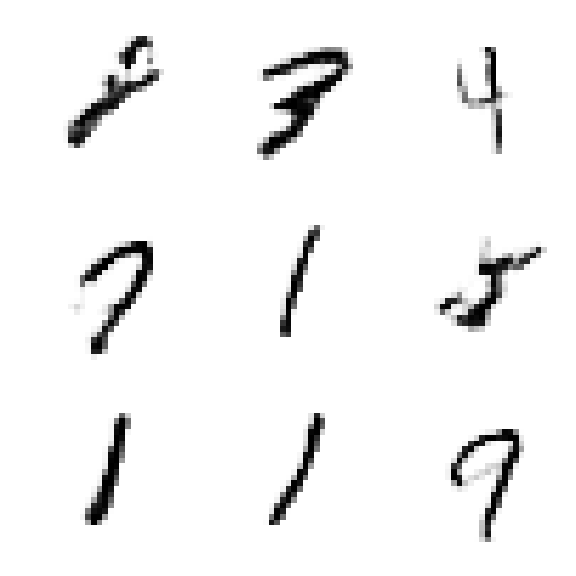 8 3 4
7 1 5
1 1 9